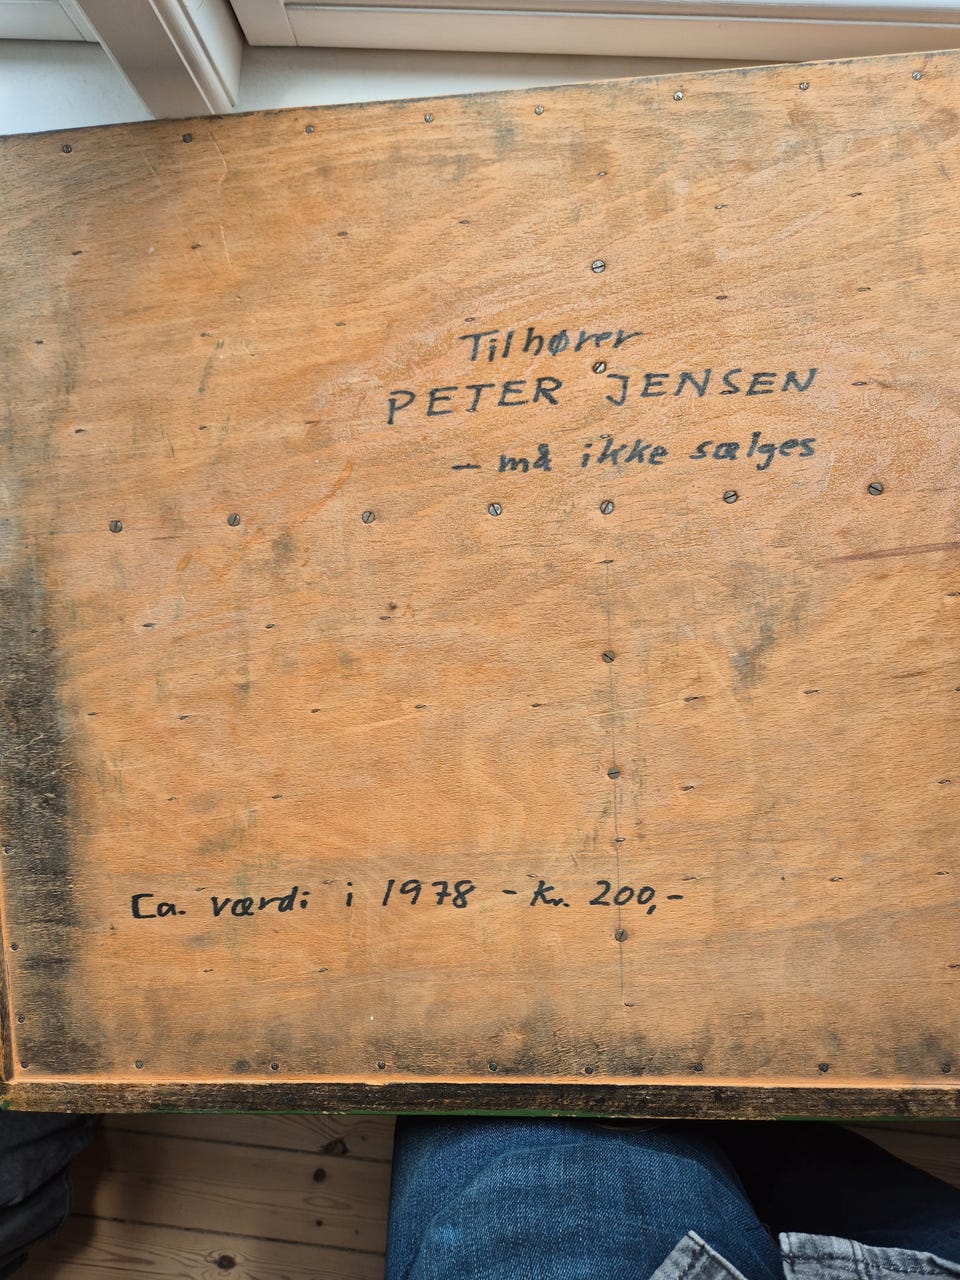 Tilhører
PETER JENSEN
- må ikke sælges
Ca. værdi i 1978 - Kr. 200,-